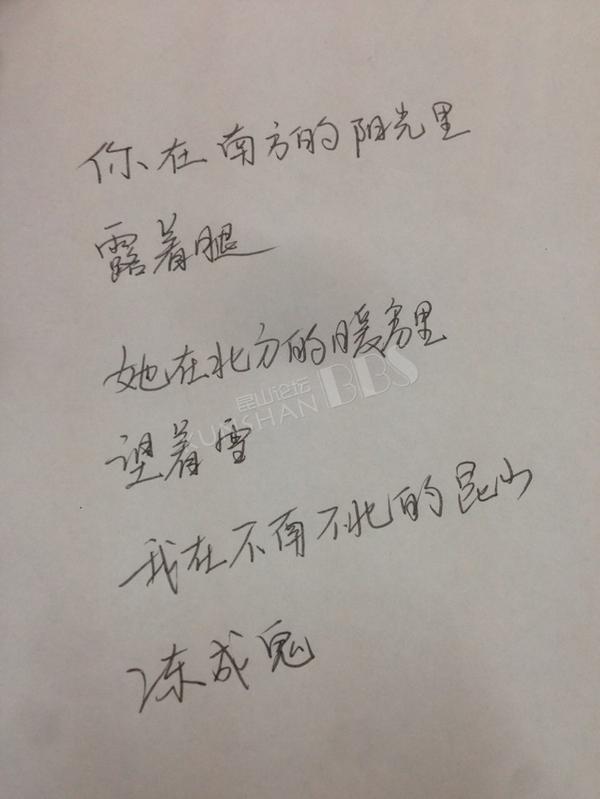 你在南方的阳光里
露着腿
她在北方的暖房里
昆山论坛 BBS
KUNSHAN
望着雪
我在不南不北的昆山
冻成鬼